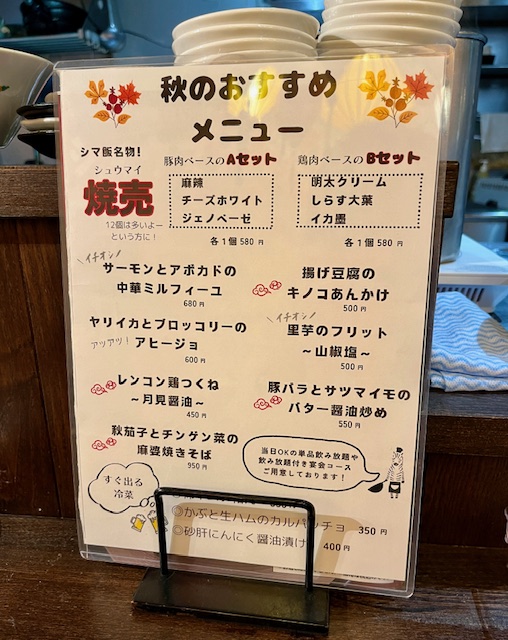 秋のおすすめ
メニュー
シマ飯名物!
シュウマイ
焼売
12個は多いよー
という方に!
豚肉ベースのAセット
麻辣
チーズホワイト
ジェノベーゼ
各1個 580 円
鶏肉ベースのBセット
明太クリーム
しらす大葉
イカ墨
各1個 580 円
イチオシ
サーモンとアボカドの
中華ミルフィーユ
680 円
揚げ豆腐の
キノコあんかけ
500 円
ヤリイカとブロッコリーの
アツアツ! アヒージョ
600 円
イチオシ
里芋のフリット
~山椒塩~
500 円
レンコン鶏つくね
~月見醤油~
450 円
豚バラとサツマイモの
バター醤油炒め
550 円
秋茄子とチンゲン菜の
麻婆焼きそば
950 円
当日OKの単品飲み放題や
飲み放題付き宴会コース
ご用意しております!
すぐ出る
冷菜
◎かぶと生ハムのカルパッチョ 350 円
◎砂肝にんにく醤油漬け 400 円